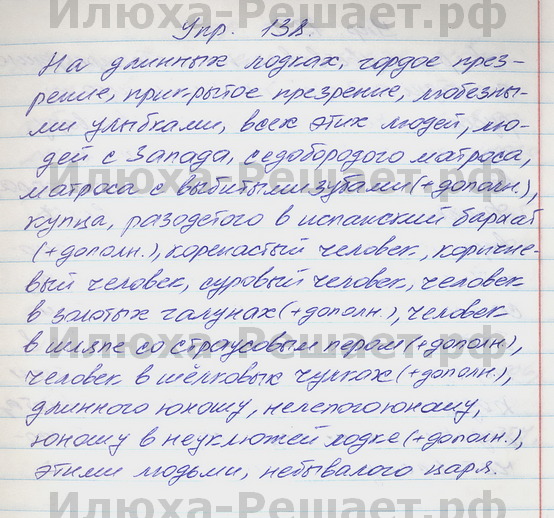 Илюха-Решает.рф
Упр. 138.
На длинных лодках, гордое през-
рение, прикрытое презрение, любезны-
ми улыбками, всех этих людей, лю-
дей с Запада, седобородого матроса,
матроса с выбитыми зубами (+дополн.),
купца, разодетого в испанский бархат
(+дополн.), коренастый человек, коричне-
вый человек, суровый человек, человек
в золотых галунах (+дополн.), человек
Илюха-Решает.рф
в шляпе со страусовым пером (+дополн.),
человек в шёлковых чулках (+дополн.),
длинного юношу, нелепого юношу,
юношу в неуклюжей лодке (+дополн.),
этими людьми, небывалого царя.
Илюха-Решает.рф